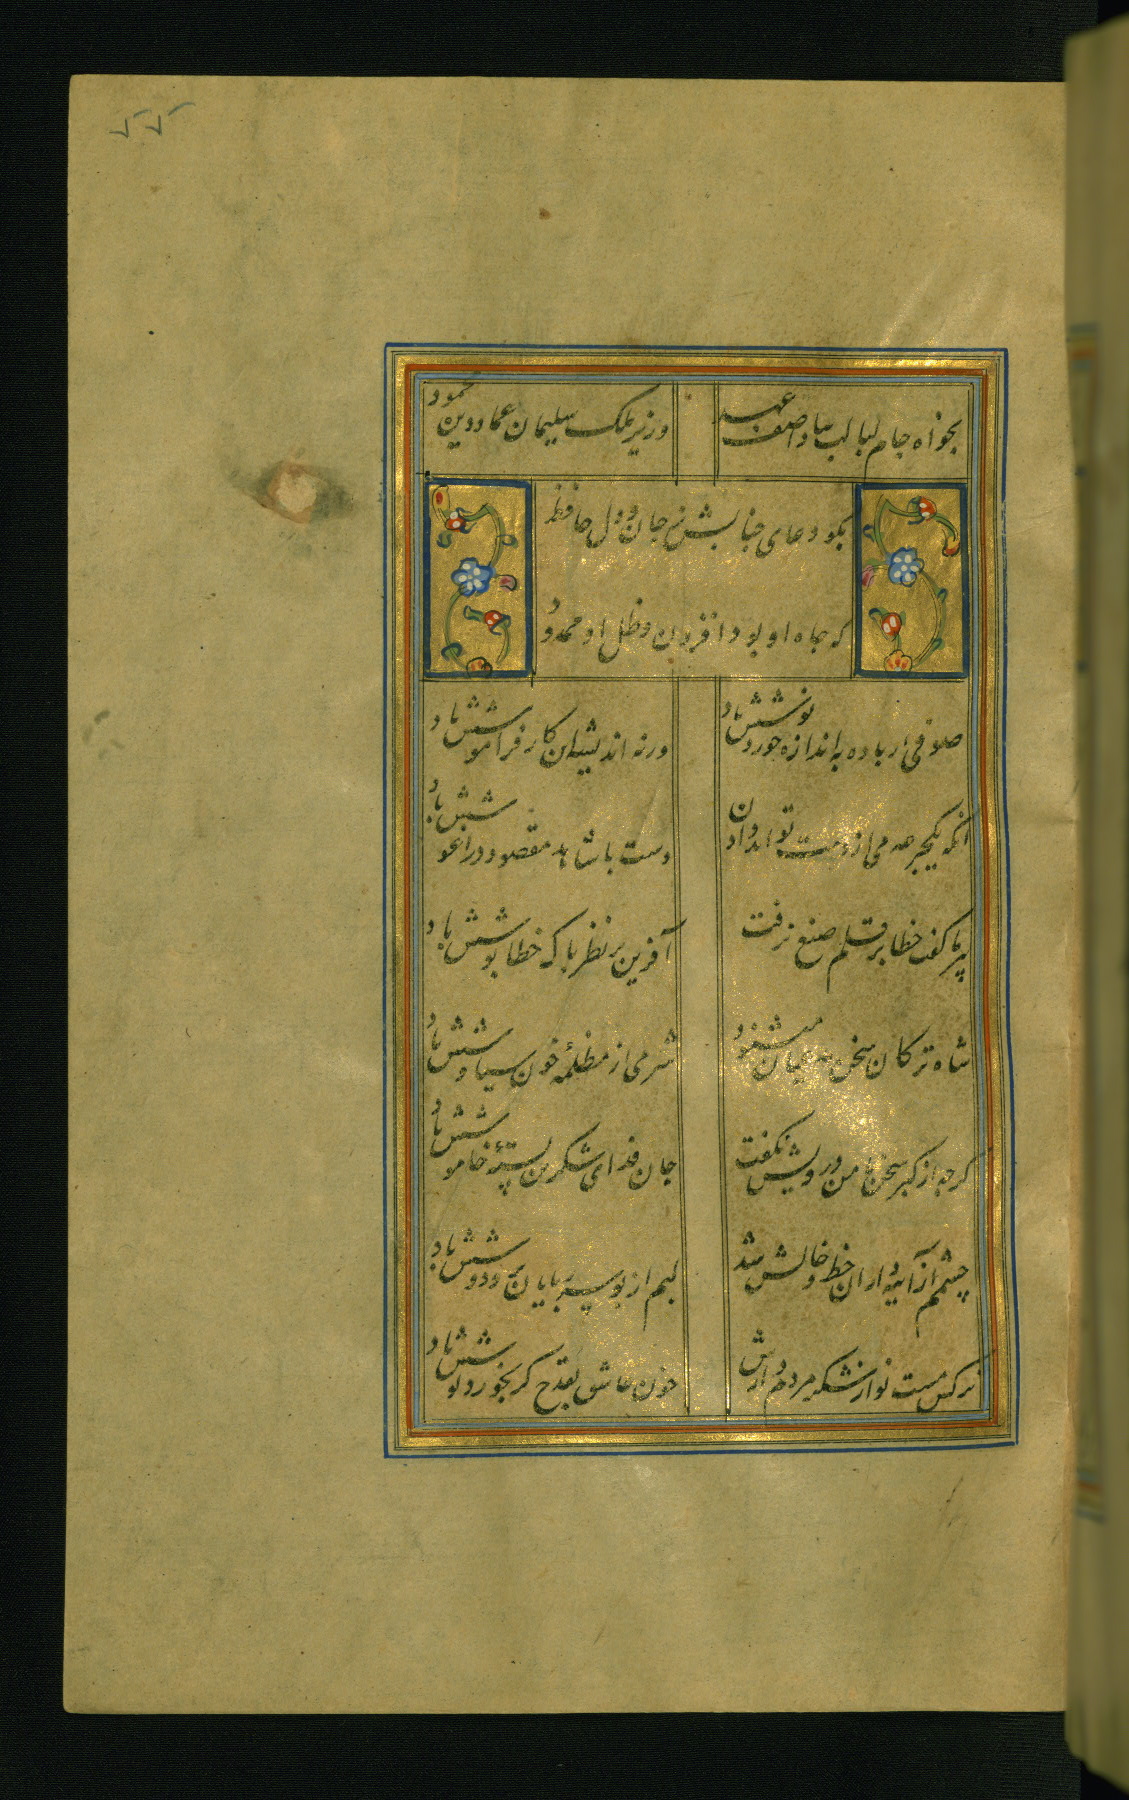 ۷۷
بخواه جام لبالب بیاد آصف عهد
وزیر ملک سلیمان عماد دین محمود
بکو دعای جنابش ز جان و دل حافظ
که جاه او بود افزون و ظل او ممدود
صوفی ار باده به اندازه خورد نوشش باد
ورنه اندیشه این کار فراموشش باد
انکه یکجرعه می از دست تواند دادن
دست با شاهد مقصود در اغوشش باد
پیر ما کفت خطا بر قلم صنع نرفت
آفرین بر نظر پاک خطا پوشش باد
شاه ترکان سخن مدعیان میشنود
شرمی از مظلمهٔ خون سیاوشش باد
کرچه از کبر سخن با من درویش نکفت
جان فدای شکرین پستهٔ خاموشش باد
چشمم از آینه داران خط و خالش شد
لبم از بوسه ربایان بر و دوشش باد
نرکس مست نوازشکر مردم دارش
خون عاشق بقدح کر بخورد نوشش باد